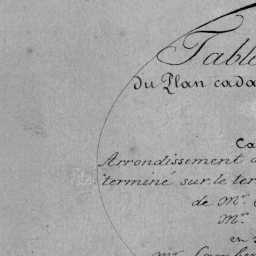 Table
du Plan cada
Ca
Arrondissement d
terminé sur le ter
de Mr.
Mr.
en
Mr.